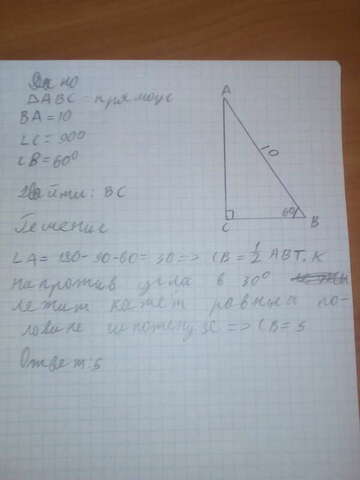 Дано
ΔABC - прямоуг
BA = 10
∠C = 90°
∠B = 60°
Найти: BC
Решение
∠A = 180-90-60 = 30 => CB = 1/2 AB т. к
напротив угла в 30°
лежит катет равный по-
ловине гипотенузе => CB = 5
Ответ: 5
A
10
60°
C
B